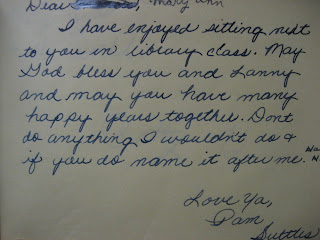 Dear Mary Ann
I have enjoyed sitting next
to you in library class. May
God bless you and Lanny
and may you have many
happy years together. Dont
do anything I wouldn't do &
if you do name it after me.
Love Ya,
Pam
Suttles